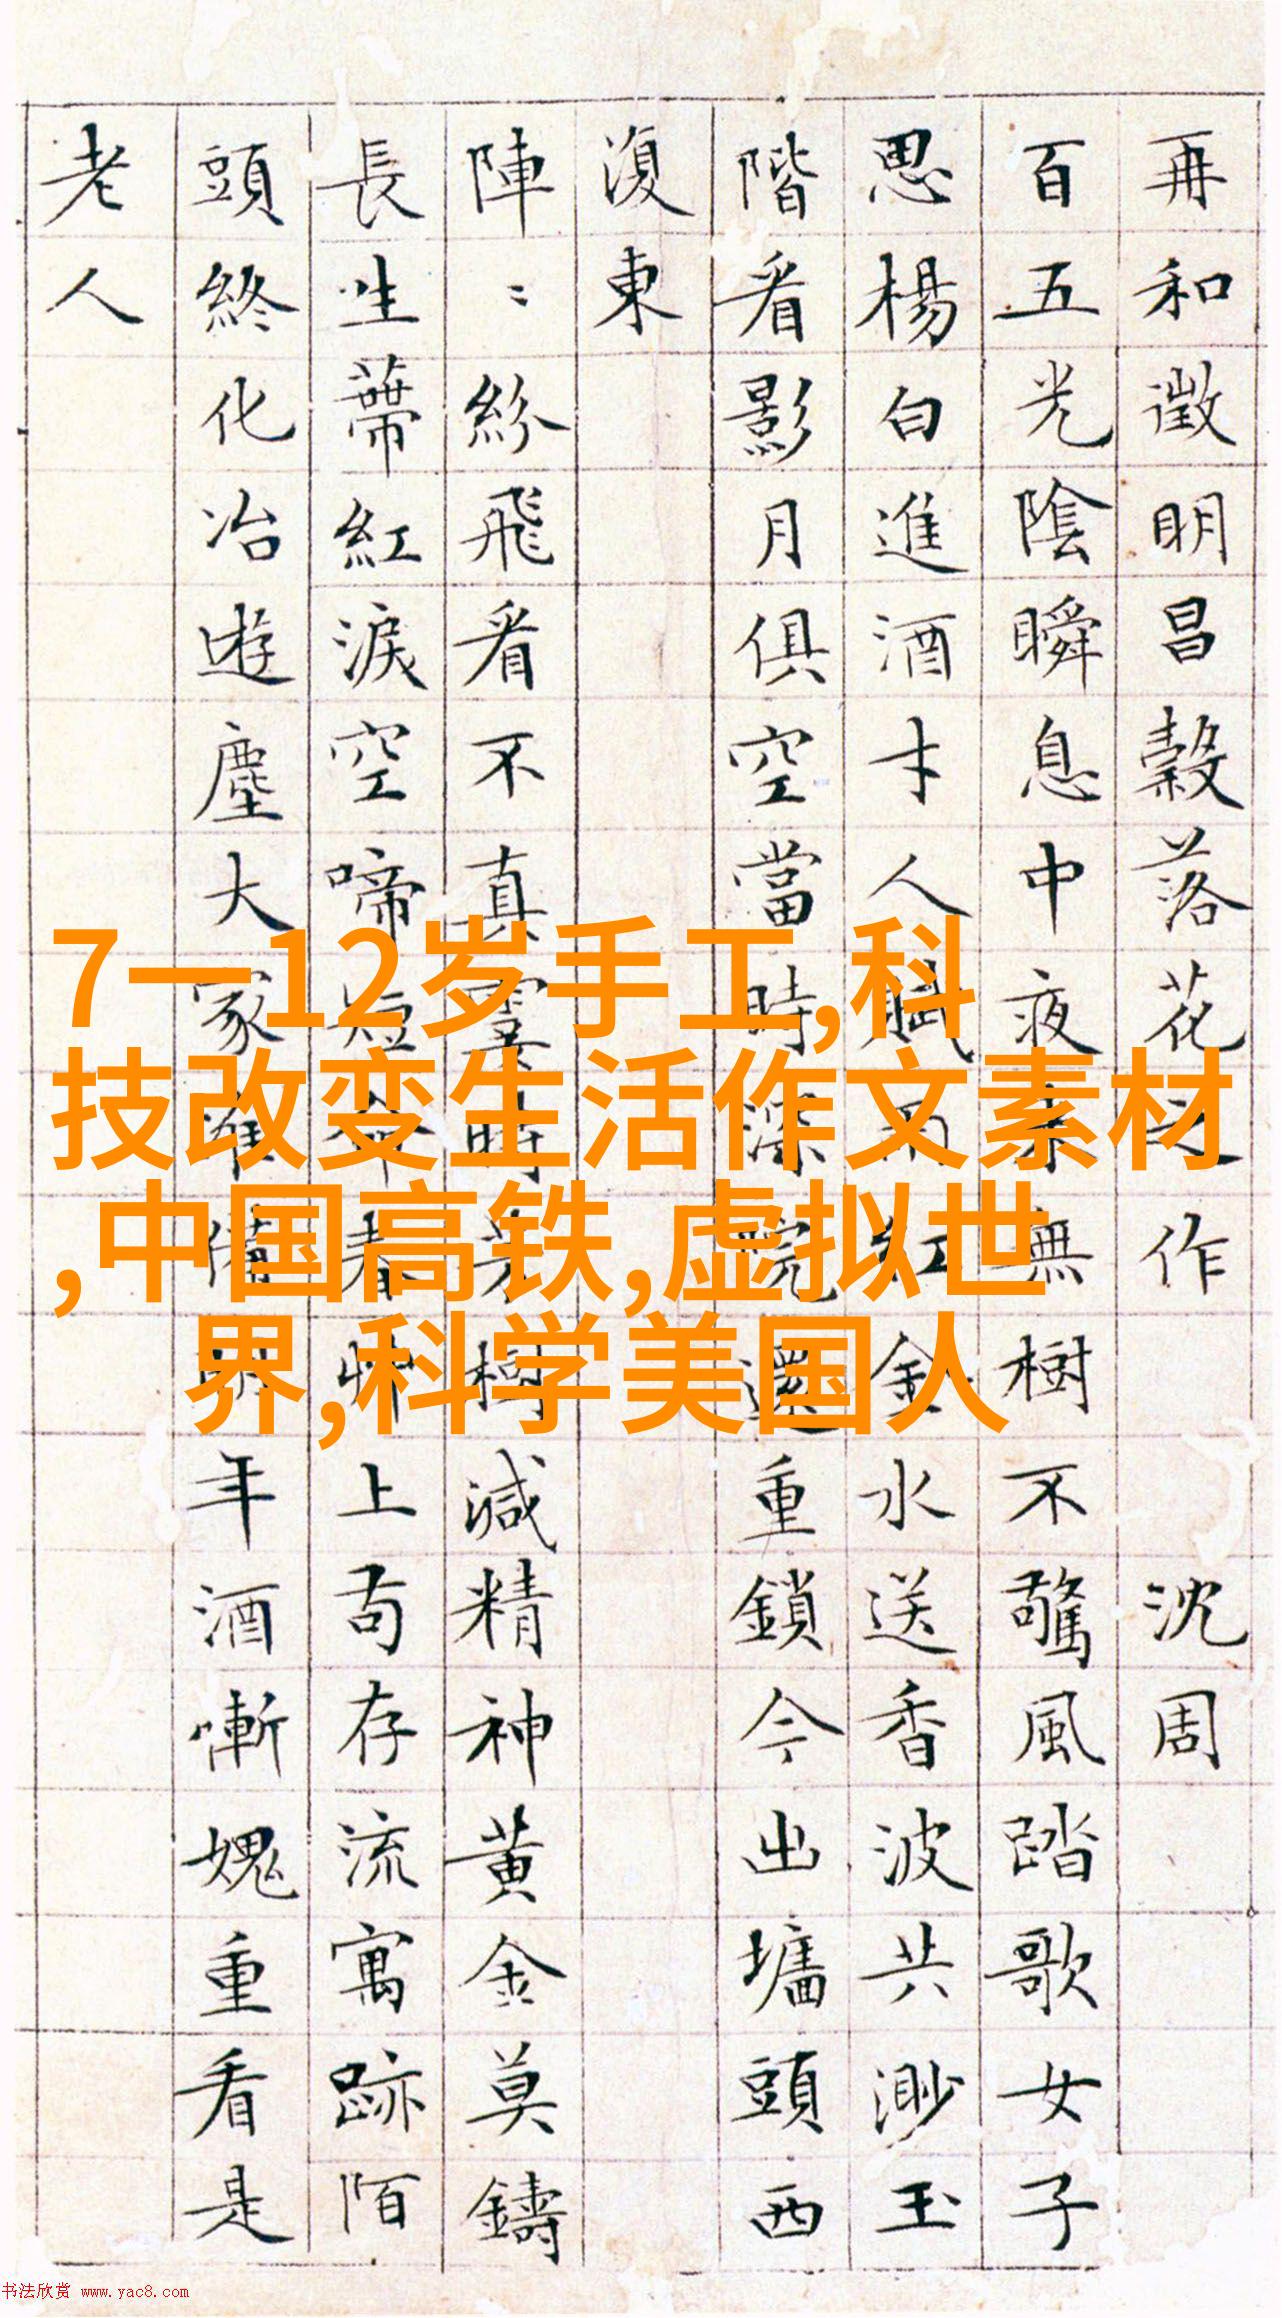 再和徵明昌穀落花之作 沈周
百五光陰瞬息中夜來無樹不驚風踏歌女子
思楊白進酒才人賦雨紅金水送香波共渺玉
階看影月俱空當時深院還重鎖今出墻頭西
復東
陣〻紛飛看不真霎時芳樹減精神黃金莫鑄
長生蔕紅淚空啼短命春艸上苟存流寓跡陌
頭終化冶遊塵大家準備明年酒慚愧重看是
老人
7一12岁手工,科
技改变生活作文素材
,中国高铁,虚拟世
界,科学美国人
书法欣赏 www.yac8.com